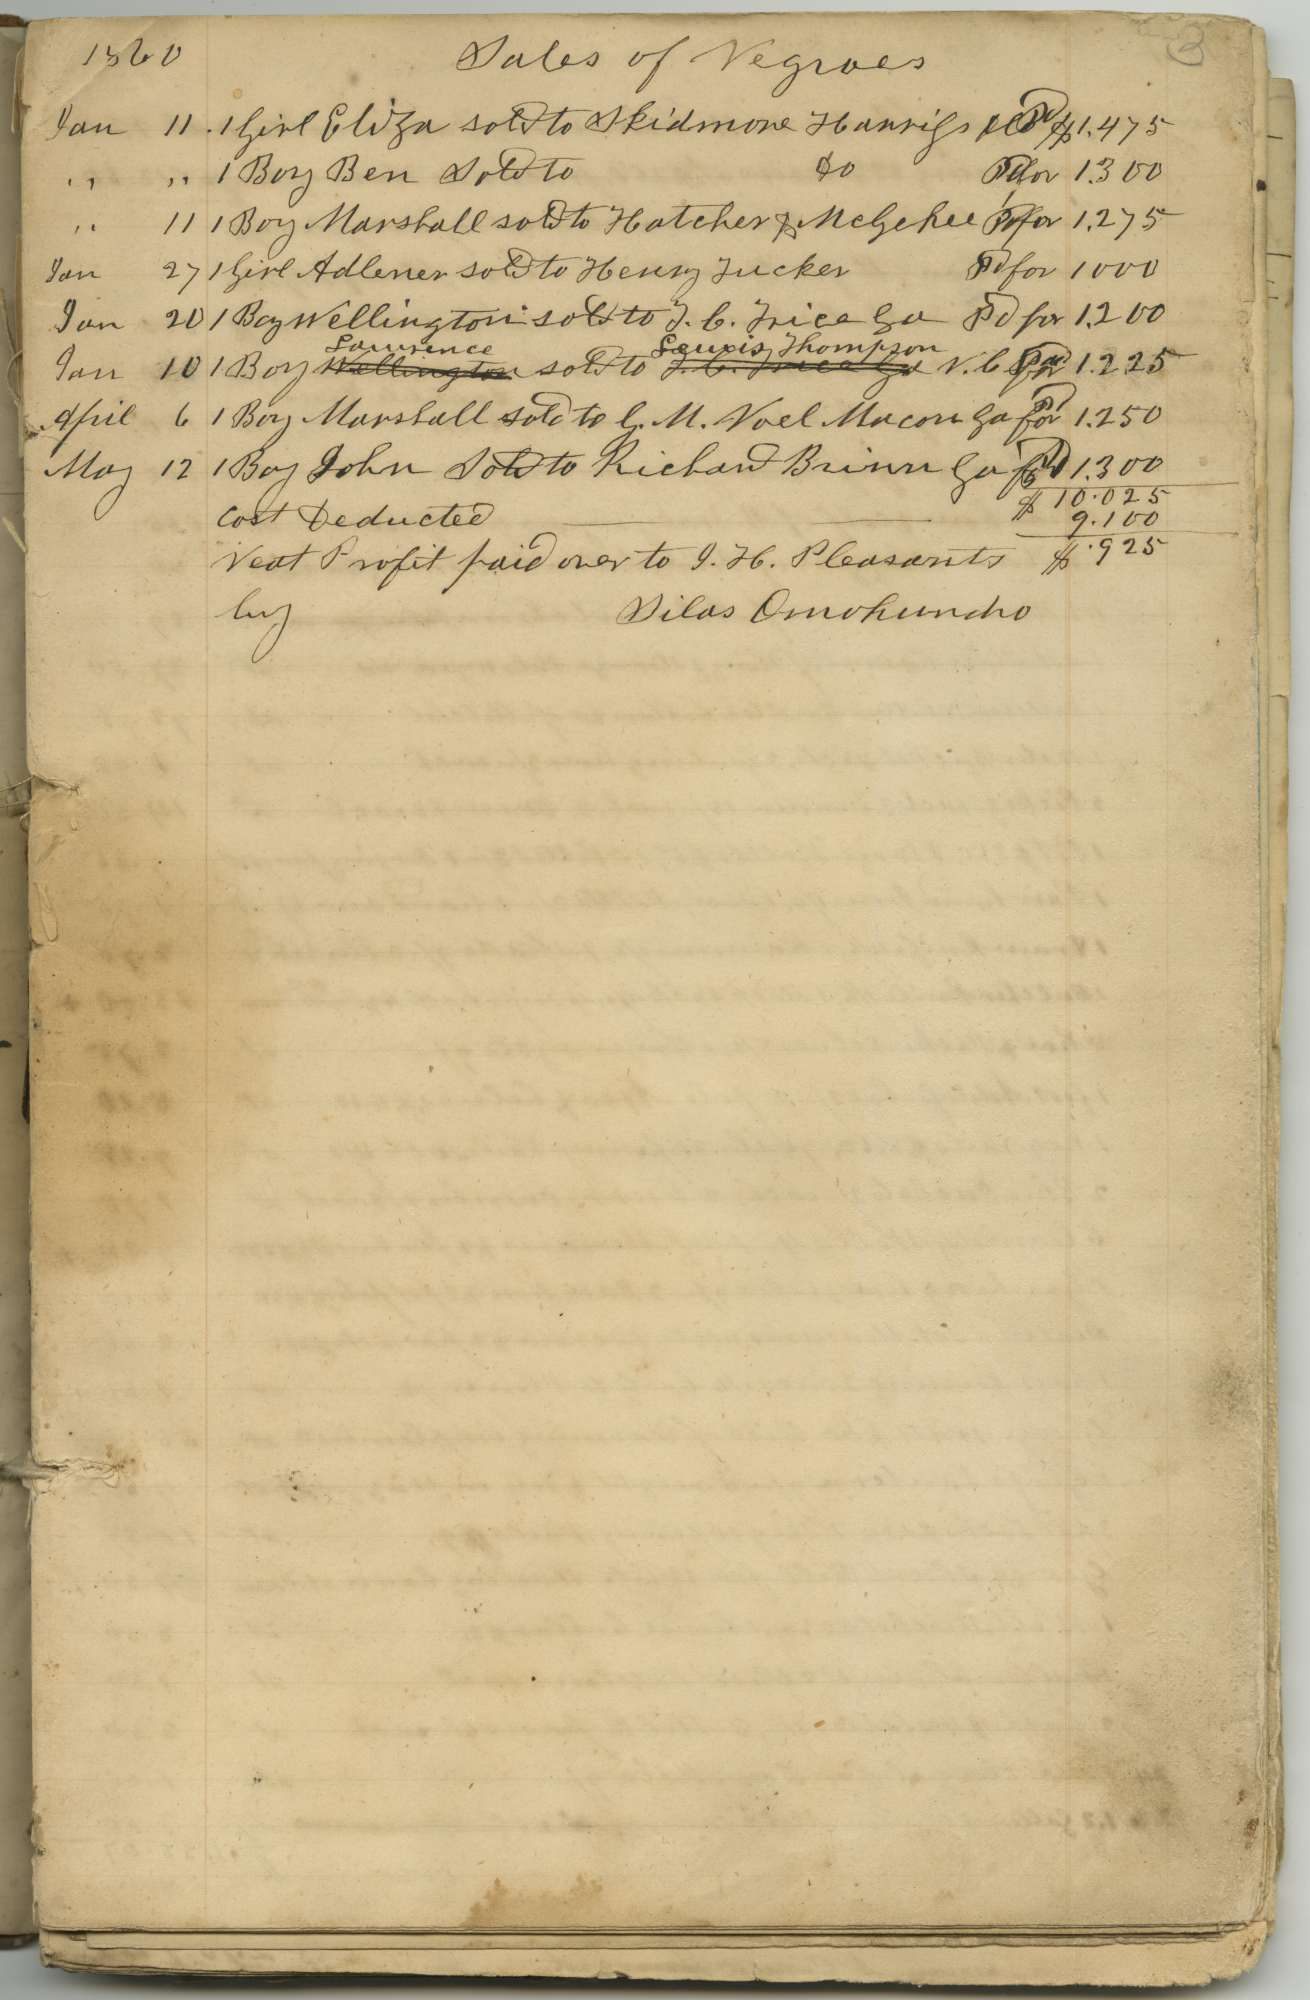 3
1860 Sales of Negroes
Jan 11 1 Girl Eliza sold to Skidmore Harris Pd $1.475
" " 1 Boy Ben Sold to do Pd for 1.300
" 11 1 Boy Marshall sold to Hatcher & McGehee Pd for 1.275
Jan 27 1 Girl Adlener sold to Henry Tucker Pd for 1000
Jan 20 1 Boy Wellington sold to T. C. Trice Ga Pd for 1.200
Lawrence Lewis Thompson
Jan 10 1 Boy Wellington sold to T. C. Trice Ga N. C Pd for 1.225
April 6 1 Boy Marshall sold to G. M. Noel Macon Ga Pd for 1.250
May 12 1 Boy John Sold to Richard Brinn Ga Pd 1.300
$10.025
Cost Deducted 9.100
Neat Profit paid over to J. H. Pleasants $.925
by Silas Omohundro